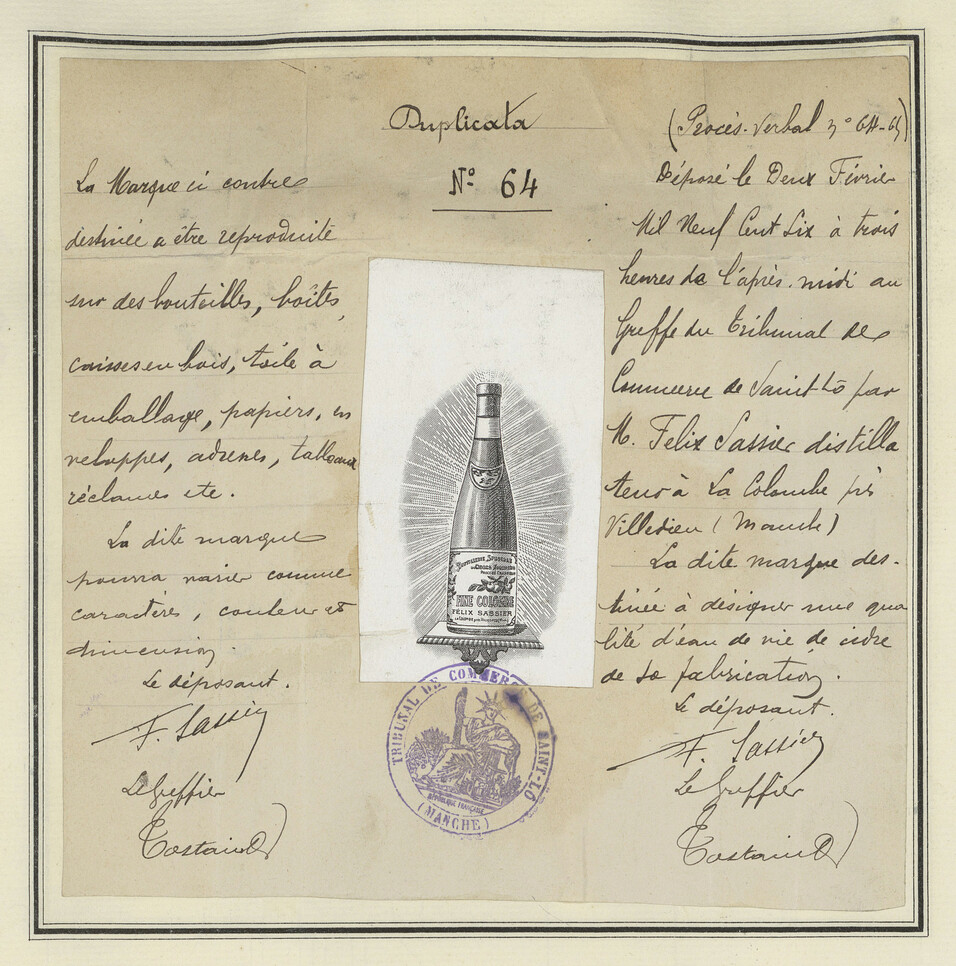 Duplicata
Nº 64
La Marque ci contre
destinée a être reproduite
sur des bouteilles, boîtes,
caisses en bois, toile à
emballage, papiers, en
veloppes, adresses, tableaux
réclames etc.
La dite marque
pourra varier comme
caractères, couleur et
dimension.
Le déposant.
F. Sassier
Le Greffier
(Procès-Verbal nº 64-65)
Déposé le Deux Février
Mil Neuf Cent Six à trois
heures de l'après-midi au
Greffe du Tribunal de
Commerce de Saint-Lô par
M. Felix Sassier distilla
teur à La Colombe près
Villedieu (Manche)
La dite marque des-
tinée à désigner une qua
lité d'eau de vie de cidre
de sa fabrication.
Le déposant.
F. Sassier
Le Greffier
FINE COLOMBE
FÉLIX SASSIER
TRIBUNAL DE COMMERCE DE SAINT-LÔ
RÉPUBLIQUE FRANÇAISE
(MANCHE)